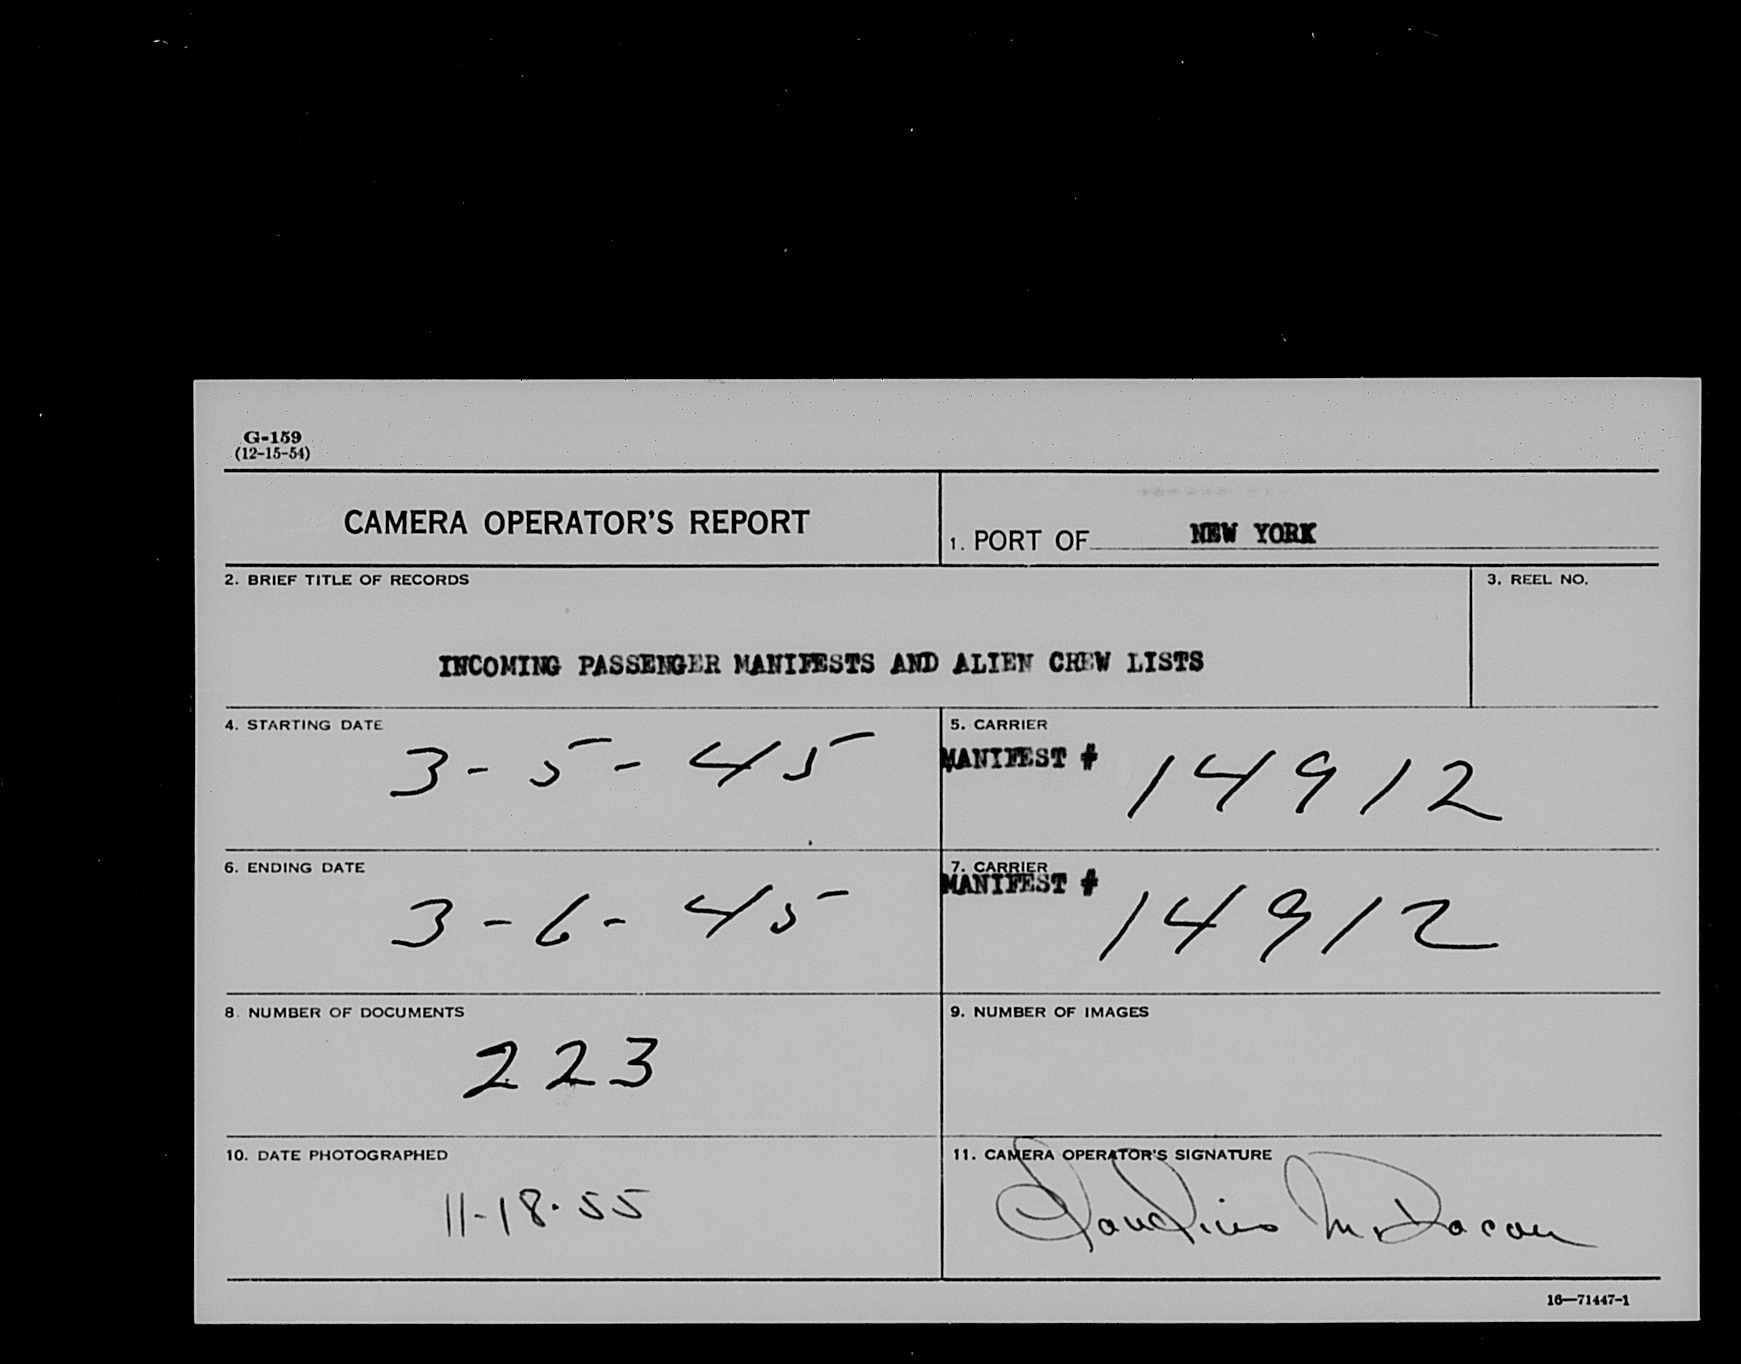 G-159
(12-15-54)
CAMERA OPERATOR'S REPORT
1. PORT OF NEW YORK
2. BRIEF TITLE OF RECORDS
3. REEL NO.
INCOMING PASSENGER MANIFESTS AND ALIEN CREW LISTS
4. STARTING DATE
3-5-45
5. CARRIER
MANIFEST # 14912
6. ENDING DATE
3-6-45
7. CARRIER
MANIFEST # 14912
8. NUMBER OF DOCUMENTS
223
9. NUMBER OF IMAGES
10. DATE PHOTOGRAPHED
11-18-55
11. CAMERA OPERATOR'S SIGNATURE
16—71447-1